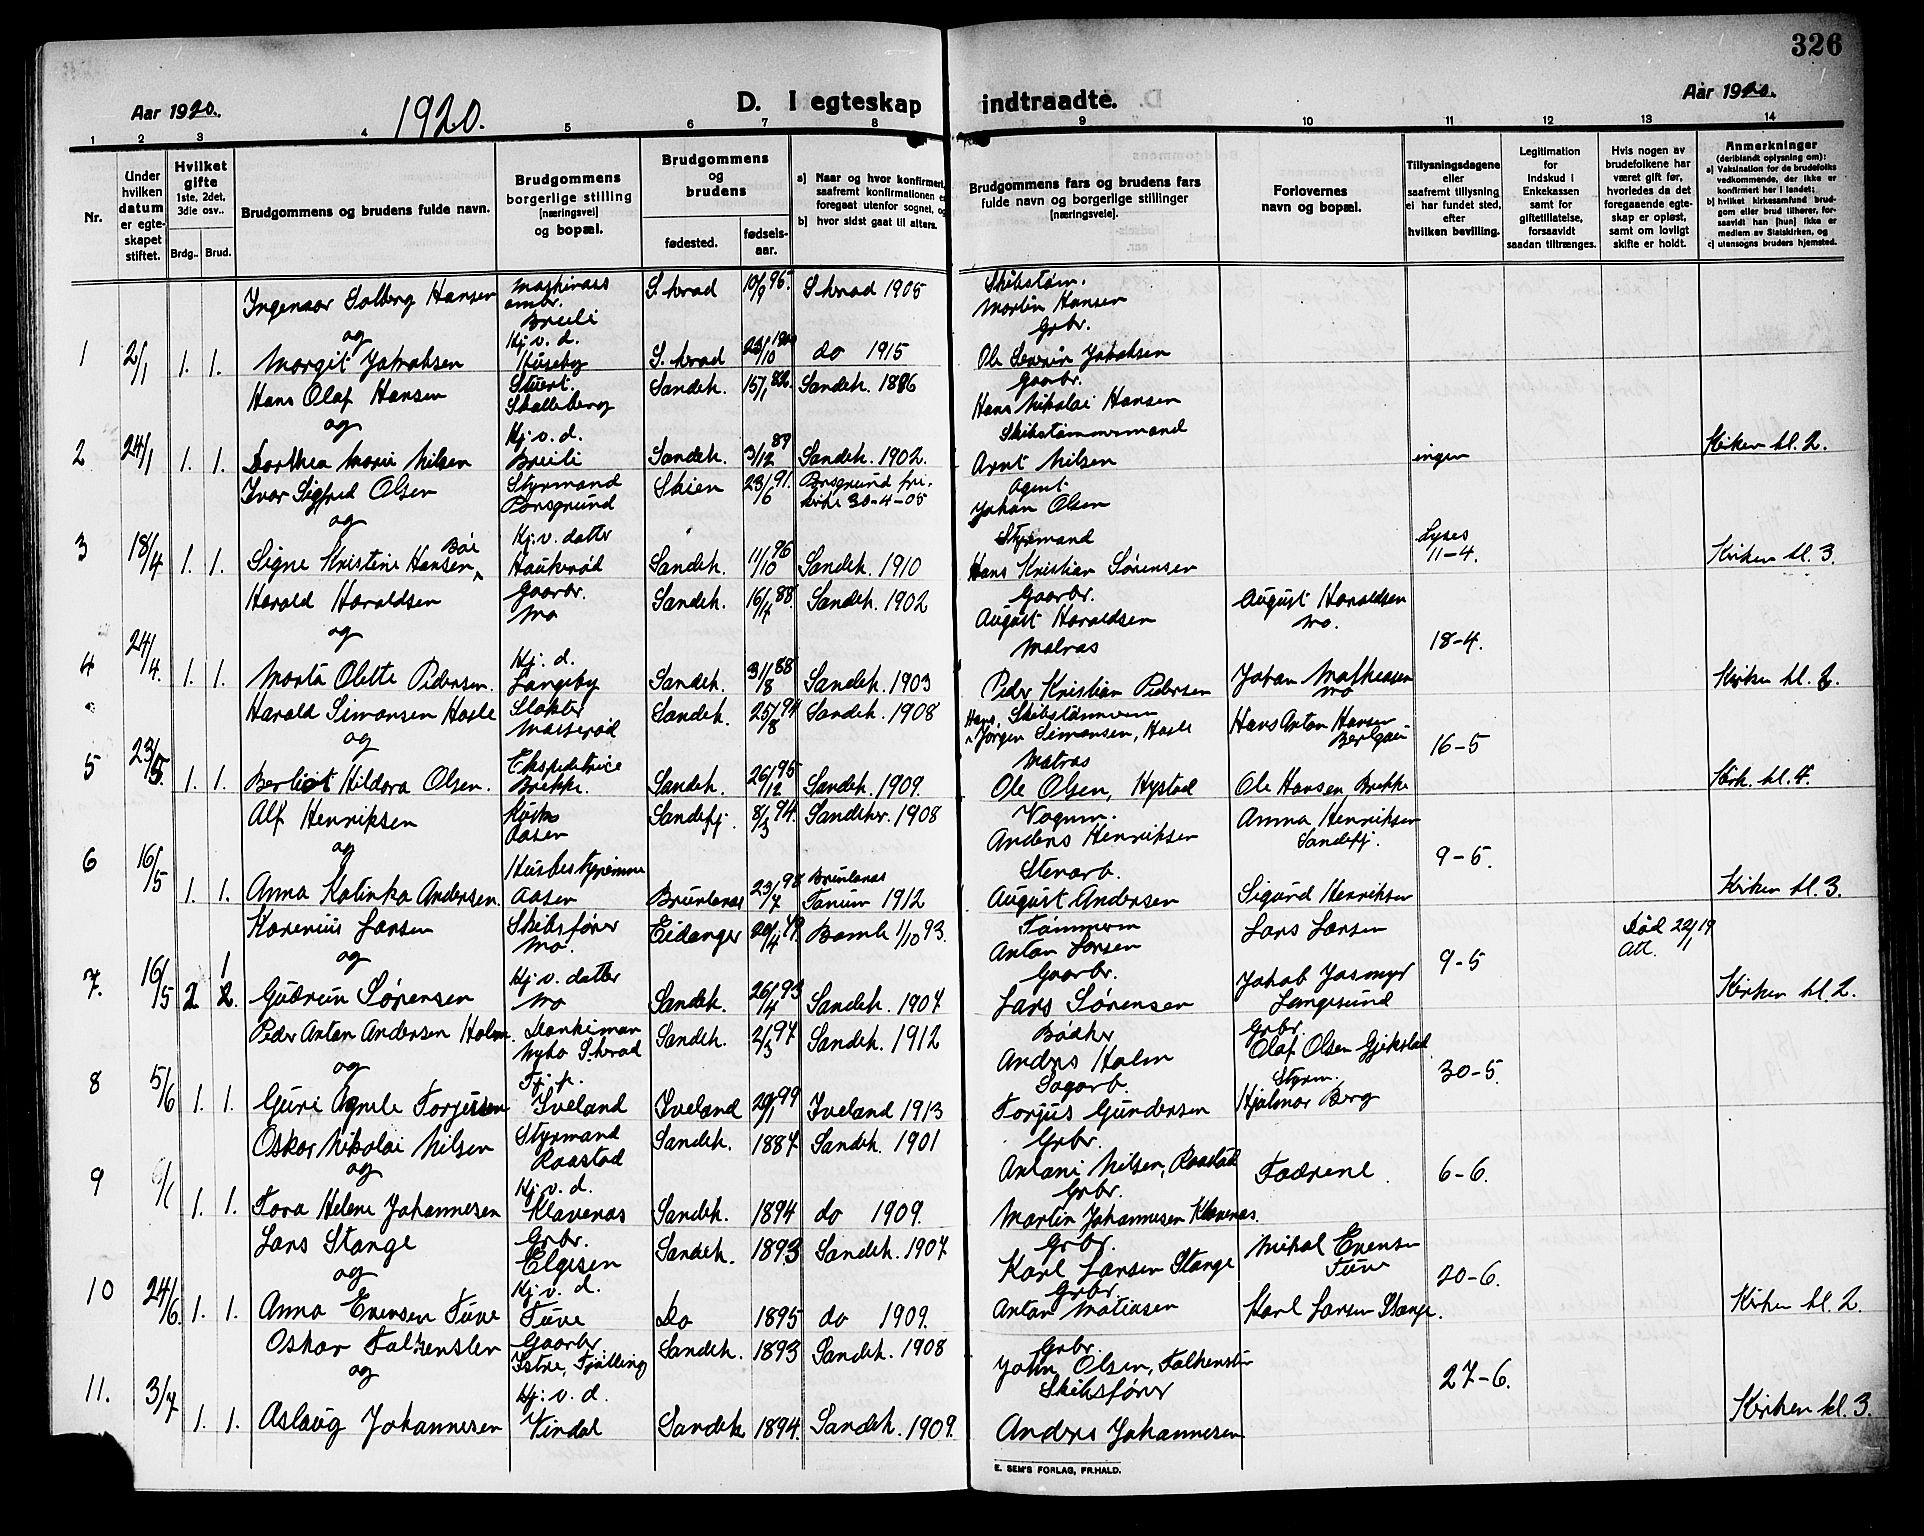 326
Aar 1920.
1920.
D. I egteskap indtraadte.
Aar 1920.
1 2 3 4 5 6 7 8 9 10 11 12 13 14
Nr.
Under hvilken datum er egte-skapet stiftet.
Hvilket gifte 1ste, 2det, 3die osv..
Brdg.. Brud.
Brudgommens og brudens fulde navn.
Brudgommens borgerlige stilling [næringsvei] og bopæl.
Brudgommens og brudens
fødested.
fødsels-aar.
a) Naar og hvor konfirmert, saafremt konfirmationen er foregaat utenfor sognet, og
b) hvor sidst gaat til alters.
Brudgommens fars og brudens fars fulde navn og borgerlige stillinger [næringsvei].
Forlovernes navn og bopæl.
Tillysningsdagene eller saafremt tillysning ei har fundet sted, efter hvilken bevilling.
Legitimation for indskud i Enkekassen samt for giftetillatelse, forsaavidt saadan tiltrænges.
Hvis nogen av brudefolkene har været gift før, hvorledes da det foregaaende egte-skap er opløst, samt om lovligt skifte er holdt.
Anmerkninger (deriblandt oplysning om):
a) Vaksination for de brudefolks vedkommende, der ikke er konfirmert her i landet;
b) hvilket kirkesamfund brud-gom eller brud tilhører, for-saavidt han [hun] ikke er medlem av Statskirken, og
c) utensogns bruders hjemsted.
Ingemar Solberg Hansen Maskinass ombr. Breili S. herad 10/9 96. S herad 1905 Skibstøm. Martin Hansen
og
1 2/1 1. 1. Margit Jakobsen Hj. v. d. Huseby S. herad 23/10 1900 do 1915 Grbr. Ole Severin Jakobsen
Hans Olaf Hansen Stuert. Skalleberg Sandeh. 15/1 Sandeh. 1886 Gaarbr. Hans Nikolai Hansen
og
2 24/1 1. 1. Dorthea Marie Nilsen Hj. v. d. Breili Sandeh. 3/12 87 Sandeh. 1902. Skibstømmermand Arnt Nilsen ingen Kirken kl. 2.
Ivar Sigfred Olsen Styrmand Porsgrund Skien 23/6 91. Porsgrund fri-kirke 30-4-05 Agent Johan Olsen
og
3 18/4 1. 1. Signe Kristine Hansen Bøe Hj. v. datter Haukerød Sandeh. 11/10 96 Sandeh. 1910 Styrmand Hans Kristian Sørensen Lyses 11-4. Kirken kl. 3.
Harald Haraldsen Gaarbr. Mo Sandeh. 16/4 88. Sandeh. 1902 Gaarbr. August Haraldsen August Haraldsen Mo.
og
4 24/4. 1. 1. Marta Olette Pedersen. Hj. d. Langeby Sandeh. 31/8 88 Sandeh. 1903 Matros Peder Kristian Pedersen Johan Mathiassen Mo 18-4. Kirken kl. 2.
Harald Simonsen Hasle Slakter Sandeh. 25/8 94 Sandeh. 1908 Skibstømmerm Hans Jørgen Simonsen, Hasle Hans Anton Hansen
og
5 23/5. 1. 1. Berliot Hildora Olsen. Ekspeditrice Brekke. Sandeh. 26/12 95 Sandeh. 1909. Matros Ole Olsen, Hystad Ole Hansen Brekke 16-5 Kirk. kl. 4.
Alf Henriksen Aasen Sandefj. 8/3 94. Sandeher. 1908 Vognm. Anders Henriksen Anna Henriksen Sandefj.
og
6 16/5 1. 1. Anna Katinka Andersen. Husbestyrerinne Aasen Brunlanes 23/7 98 Brunlanes Tanum 1912 Stenarb. August Andersen Sigurd Henriksen 9-5. Kirken kl. 3.
Karenius Larsen Skibsfører Mo. Eidanger 20/4 Bamle 1/10 93. Tømmerm Anton Larsen Lars Larsen Død 22/1 19 Att.
og
7. 16/5 2 1 2. Gudrun Sørensen Hj. v. datter Mo Sandeh. 26/4 93 Sandeh. 1907 Gaarbr. Lars Sørensen Jakob Jasmyr Langesund 9-5 Kirken kl. 2.
Peder Anton Andersen Holm. Donkiman Nybo S herad Sandeh. 2/3 97 Sandeh. 1912 Bødker Anders Holm Grbr. Olaf Olsen Gjekstad
og
8 5/6 1. 1. Guri Agnele Torjussen Tj. p. Iveland Iveland 20/1 99 Iveland 1913 Sagarb. Torjus Gundersen Styrm. Hjalmar Berg 30-5.
Oskar Nikolai Nilsen Styrmand Raastad Sandeh. 1887 Sandeh. 1901 Grbr. Antoni Nilsen, Raastad
og
9 1. 1. Tora Helene Johannesen Hj. v. d. Klavenæs Sandeh. 1894 do 1909. Grbr. Martin Johannesen Klavenæs. Fædrene. 6-6.
Lars Stange Grbr. Elgesen Sandeh. 1893 Sandeh. 1907 Grbr. Karl Larsen Stange Mikal Evensen Tuve
og
10 24/6. 1. 1. Anna Evensen Tuve Hj. v. d. Tuve Do 1895 do 1909. Grbr. Anton Matiasen Karl Larsen Stange. 20-6. Kirken kl. 2.
Oskar Falkensten Gaarbr Istre, Fjølling Sandeh. 1893 Sandeh. 1908 Grbr. John Olsen, Falkensten
og
11. 3/7 1. 1. Aslaug Johannesen Hj. v. d. Vindal Sandeh 1894. Sandeh. 1909. Skibsfører Anders Johannesen 27-6. Kirken kl. 3.
E. SEM'S FORLAG, FR.HALD.